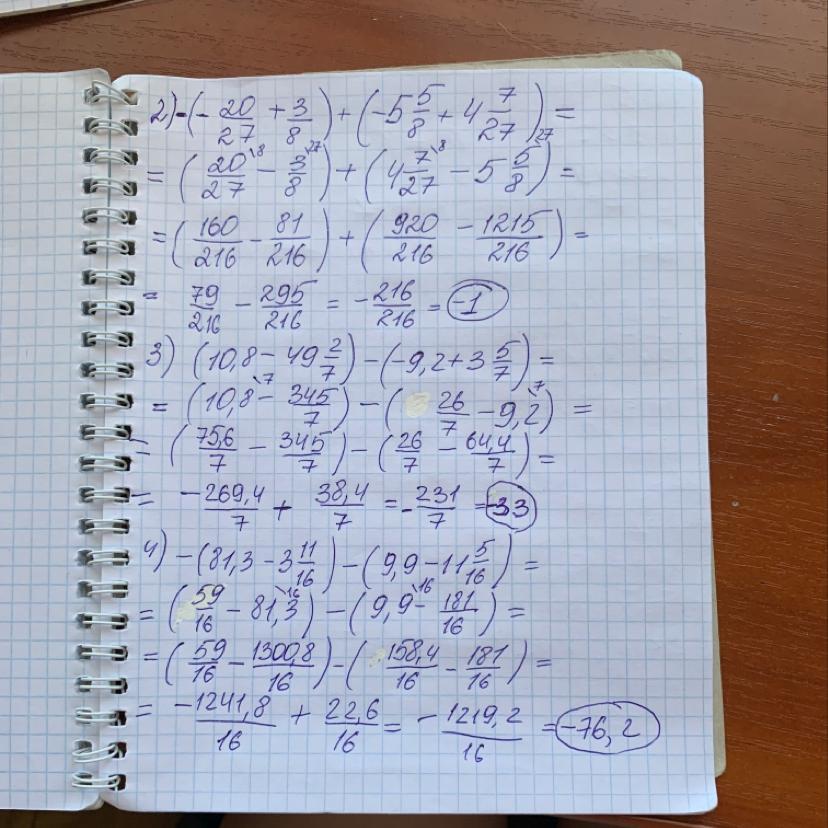 2) -(-20/27 + 3/8) + (-5 5/8 + 4 7/27) =
= (20/27 \8 - 3/8 \27) + (4 7/27 \8 - 5 5/8 \27) =
= (160/216 - 81/216) + (920/216 - 1215/216) =
= 79/216 - 295/216 = -216/216 = -1
3) (10,8 - 49 2/7) - (-9,2 + 3 5/7) =
= (10,8 \7 - 345/7) - (26/7 - 9,2 \7) =
= (75,6/7 - 345/7) - (26/7 - 64,4/7) =
= -269,4/7 + 38,4/7 = -231/7 = -33
4) -(81,3 - 3 11/16) - (9,9 - 11 5/16) =
= (59/16 - 81,3 \16) - (9,9 \16 - 181/16) =
= (59/16 - 1300,8/16) - (158,4/16 - 181/16) =
= -1241,8/16 + 22,6/16 = -1219,2/16 = -76,2